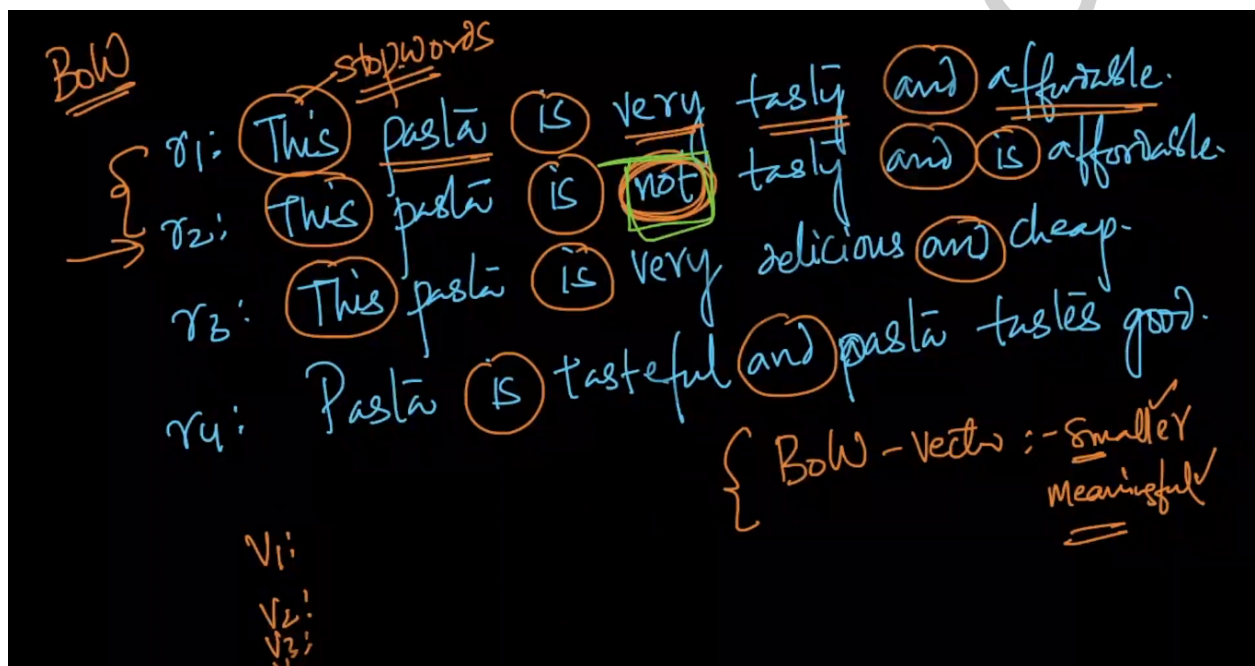 BoW
stopwords
r1: This pasta is very tasty and affordable.
r2: This pasta is not tasty and is affordable.
r3: This pasta is very delicious and cheap.
r4: Pasta is tasteful and pasta tastes good.
{ BoW - Vector :- Smaller
Meaningful
V1:
V2:
V3: